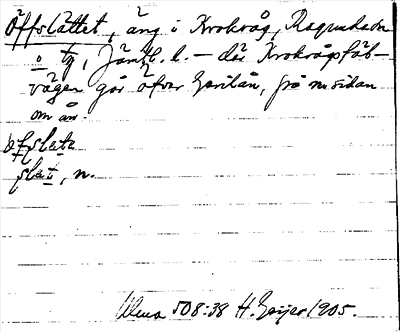 Öffslåttet, äng i Krokvåg, Ragunda sn
o tg, Jämtl. l. – där Krokvågsfäb-
vägen går öfver Gerilån, på n. sidan
om ån.
slatt, n.
Ulma 508:38 H. Geijer 1905.